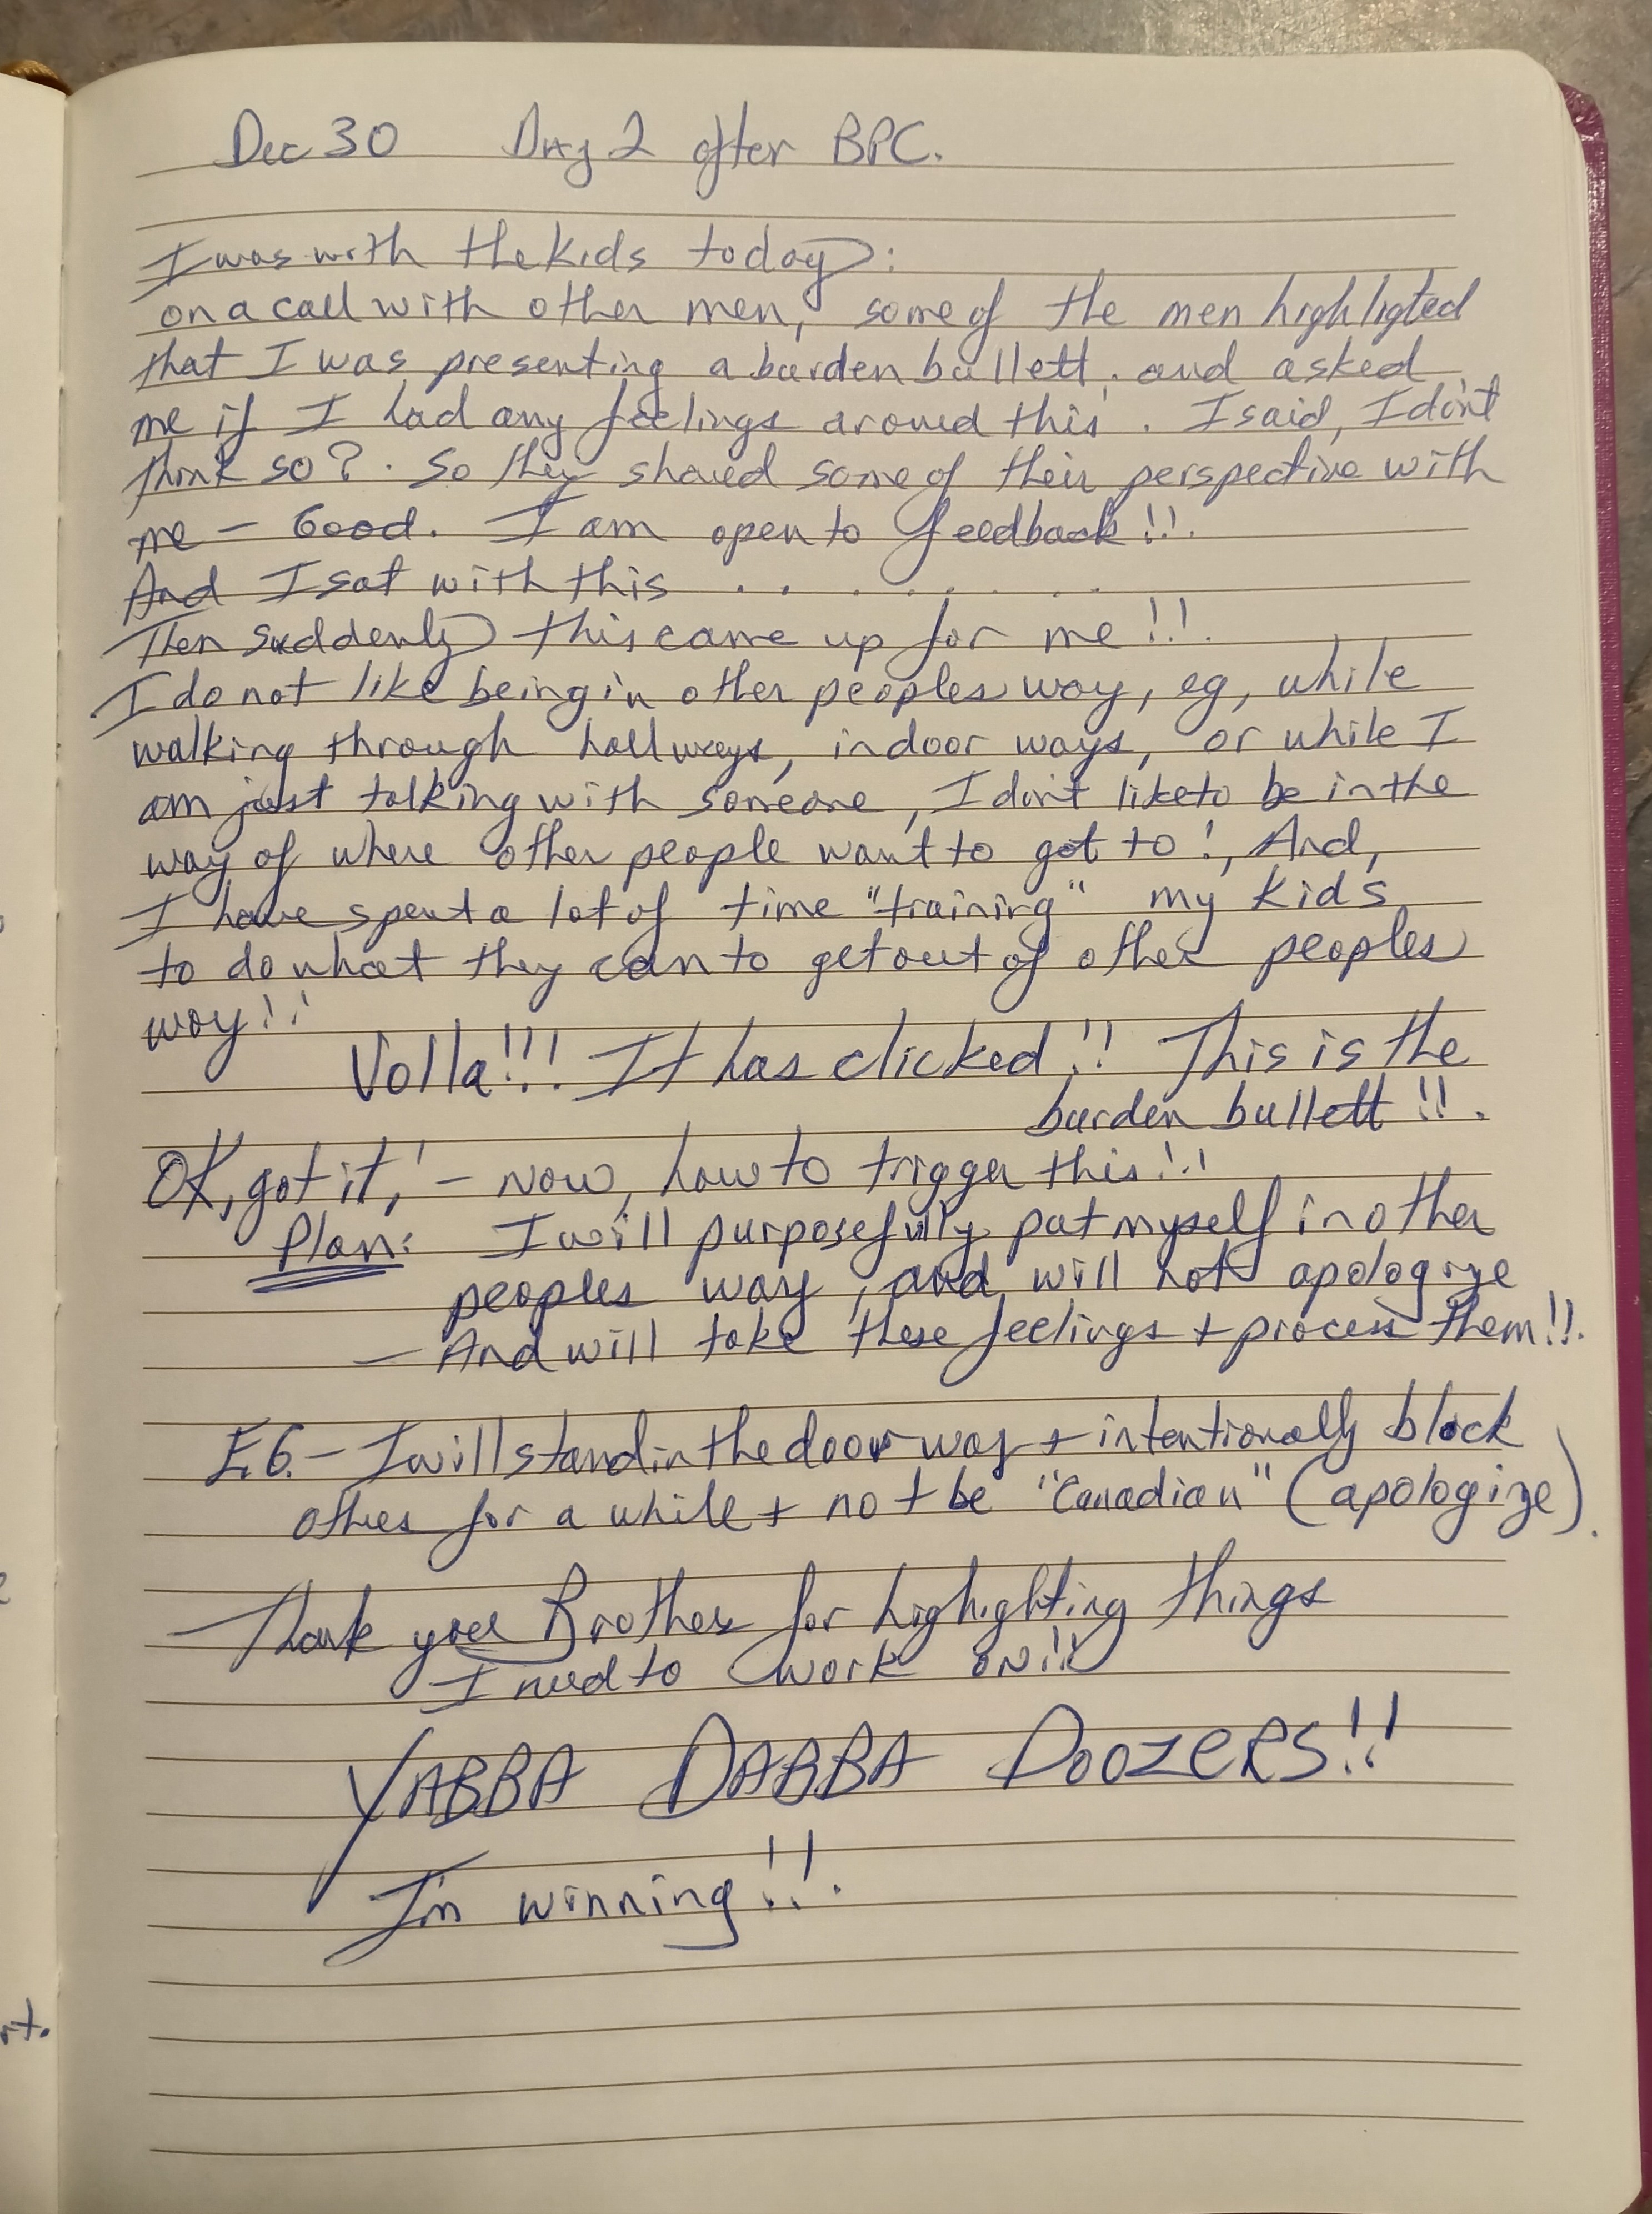 Dec 30 Day 2 after BPC.
I was with the kids today:
on a call with other men, some of the men highligted
that I was presenting a burden bullett. and asked
me if I had any feelings around this. I said, I don't
think so?. So they shared some of their perspective with
me - Good. I am open to feedback!!.
And I sat with this . . . . . . . .
Then suddenly this came up for me!!.
I do not like being in other peoples way, eg, while
walking through hallways, in door ways, or while I
am just talking with someone, I don't like to be in the
way of where other people want to got to!, And,
I have spent a lot of time "training" my kids
to do what they can to get out of other peoples
way!!
Volla!!! It has clicked!! This is the
burden bullett!!.
OK, got it,! - Now, how to trigger this!!
Plan: I will purposefully put myself in other
peoples way, and will not apologize
- And will take these feelings + process them!!.
E.G. - I will stand in the door way + intentionally block
others for a while + not be "Canadian" (apologize).
Thank you Brothers for highighting things
I need to work on!!
YABBA DABBA DOOZERS!!
I'm winning!!.
rt.